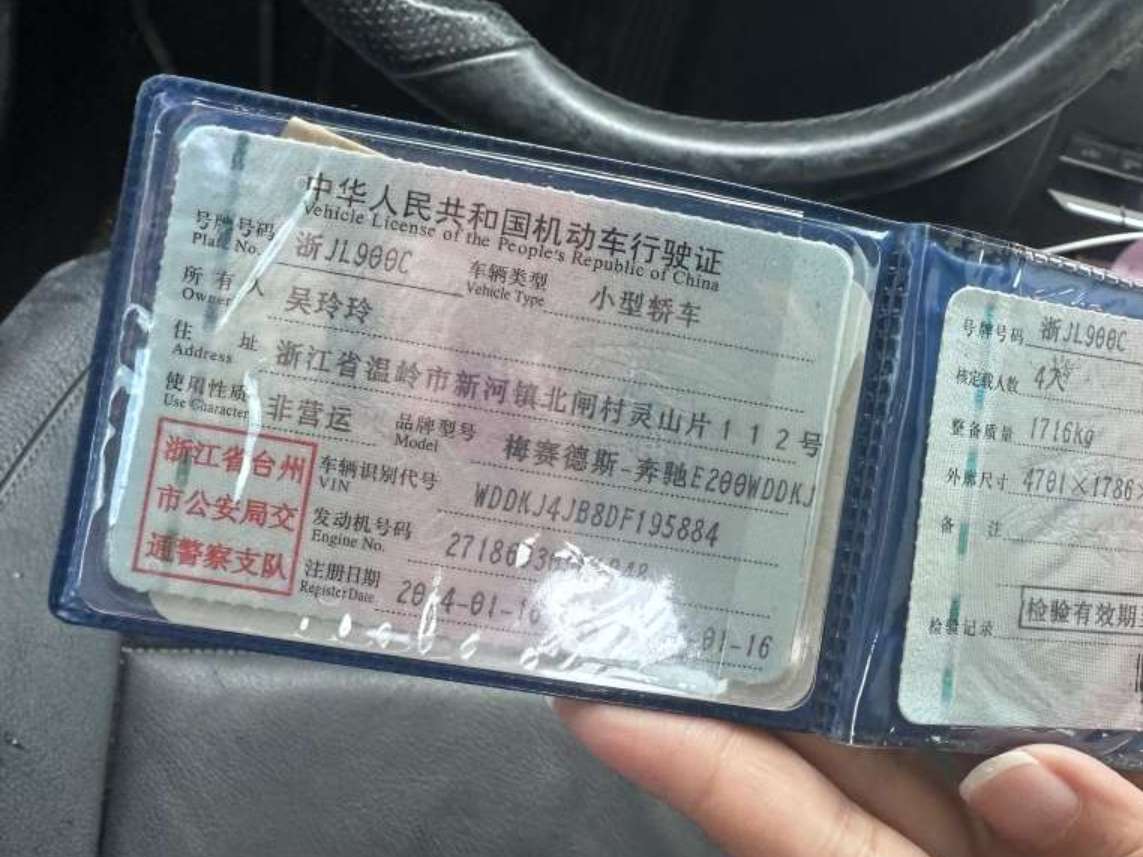 中华人民共和国机动车行驶证
Vehicle License of the People's Republic of China
号牌号码 浙JL900C 车辆类型 小型轿车
Plate No. Vehicle Type
所有人 吴玲玲
Owner
住址 浙江省温岭市新河镇北闸村灵山片112号
Address
使用性质 非营运 品牌型号 梅赛德斯-奔驰E200WDDKJ
Use Character Model
浙江省台州
市公安局交
通警察支队
车辆识别代号 WDDKJ4JB8DF195884
VIN
发动机号码
Engine No.
注册日期 2014-01-16
Register Date
01-16
号牌号码 浙JL900C
核定载人数 4人
整备质量 1716kg
外廓尺寸 4701×1786
备注
检验有效期
检验记录